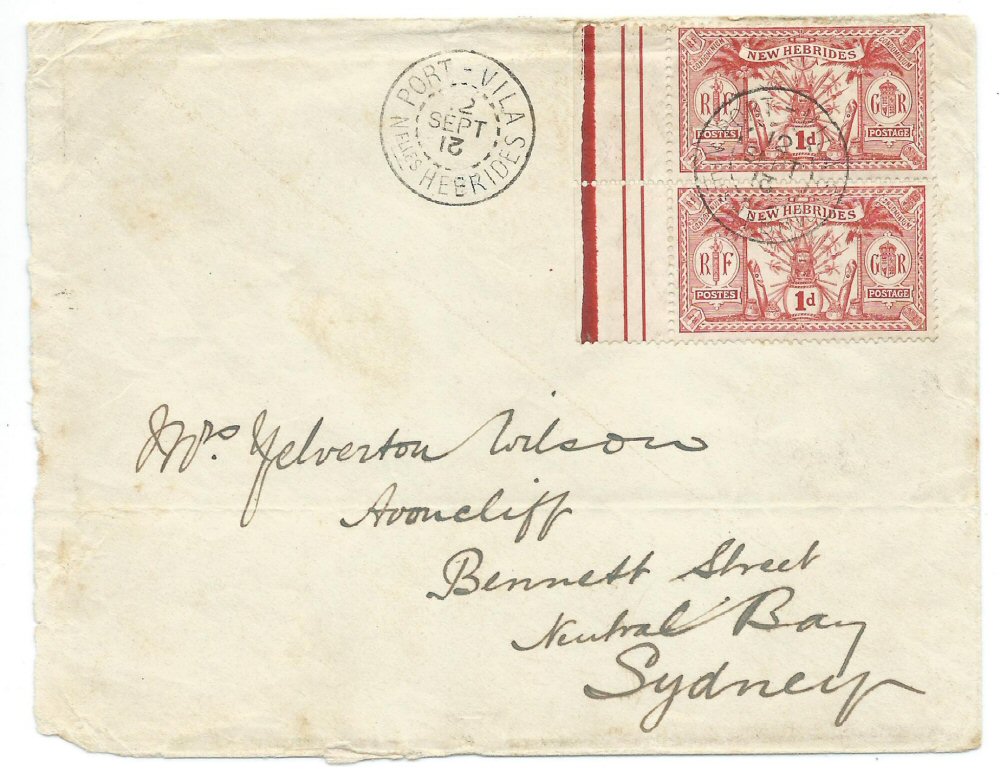 PORT-VILA
12
SEPT
12
Nelles HEBRIDES
CONDOMINIUM
NEW HEBRIDES
CONDOMINIUM
RF
GR
POSTES
1d
POSTAGE
NEW HEBRIDES
CONDOMINIUM
RF
GR
POSTES
1d
POSTAGE
Mrs. Yelverton Wilson
Avoncliff
Bennett Street
Neutral Bay
Sydney